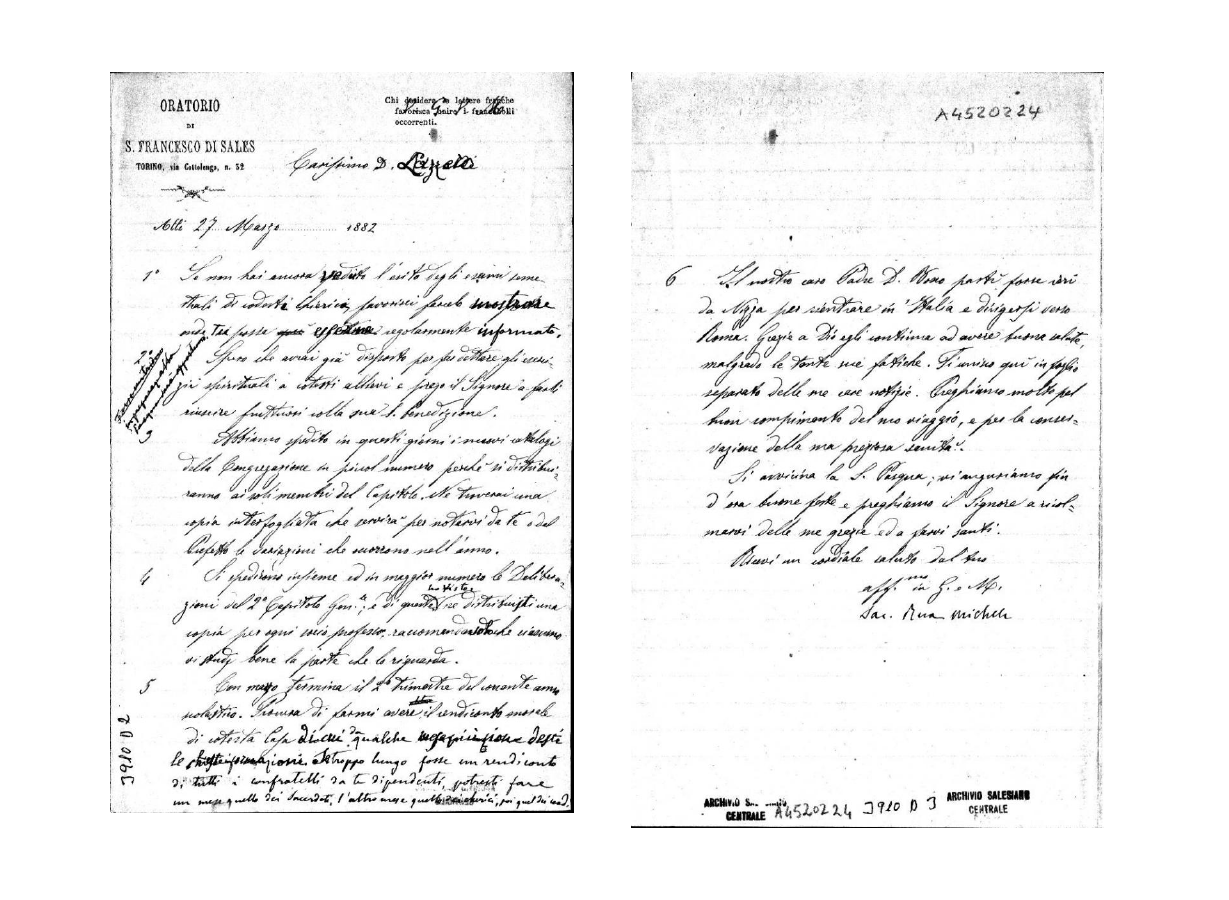 ORATORIO
DI
S. FRANCESCO DI SALES
TORINO, via Cottolengo, n. 32
Chi desidera le lettere franche
favorisca unire i francobolli
occorrenti.
Carissimo D. Lazzero
Atti 27 Marzo 1882
1° Se non hai ancora veduto l'esito degli esami seme-
strali di codesti chierici, favorisci farlo mostrare
onde tu possa regolarmente informato.
2° Spero che avrai già disposto per far dettare gli eser-
zii spirituali a cotesti allievi e prego il Signore a farli
riuscire fruttuosi colla sua S. benedizione.
3 Abbiamo spedito in questi giorni i nuovi cataloghi
della Congregazione in piccol numero perchè si distribui-
ranno ai soli membri del Capitolo. Ne troverai una
copia interfogliata che servirà per notarvi da te o dal
Prefetto le variazioni che occorrono nell'anno.
4 Si spedirono insieme ed in maggior numero le Delibera-
zioni del 2° Capitolo Gen.e, e di queste ne distribuisti una
copia per ogni socio professo, raccomandando che ciascuno
vi studj bene la parte che lo riguarda.
5 Con marzo termina il 2° trimestre del corrente anno
scolastico. Procura di farmi avere il rendiconto morale
di cotesta Casa qualche
le troppo lungo fosse un rendiconto
di tutti i confratelli da te dipendenti, potresti fare
un mese quello dei Sacerdoti, l'altro mese quello dei chierici, poi quel dei coad.
J910 D 2
A4520224
6 Il nostro caro Padre D. Bosco partì forse ieri
da Nizza per rientrare in Italia e dirigersi verso
Roma. Grazie a Dio egli continua ad avere buona salute,
malgrado le tante sue fatiche. Ti unisco qui in foglio
separato delle sue care notizie. Preghiamo molto pel
buon compimento del suo viaggio, e per la conser-
vazione della sua preziosa sanità.
Si avvicina la S. Pasqua; vi auguriamo fin
d'ora buone feste e preghiamo il Signore a ricol-
marvi delle sue grazie ed a farvi santi.
Ricevi un cordiale saluto dal tuo
aff.mo in G. e M.
Sac. Rua Michele
ARCHIVIO
CENTRALE A4520224 J910 D 3 ARCHIVIO SALESIANO
CENTRALE